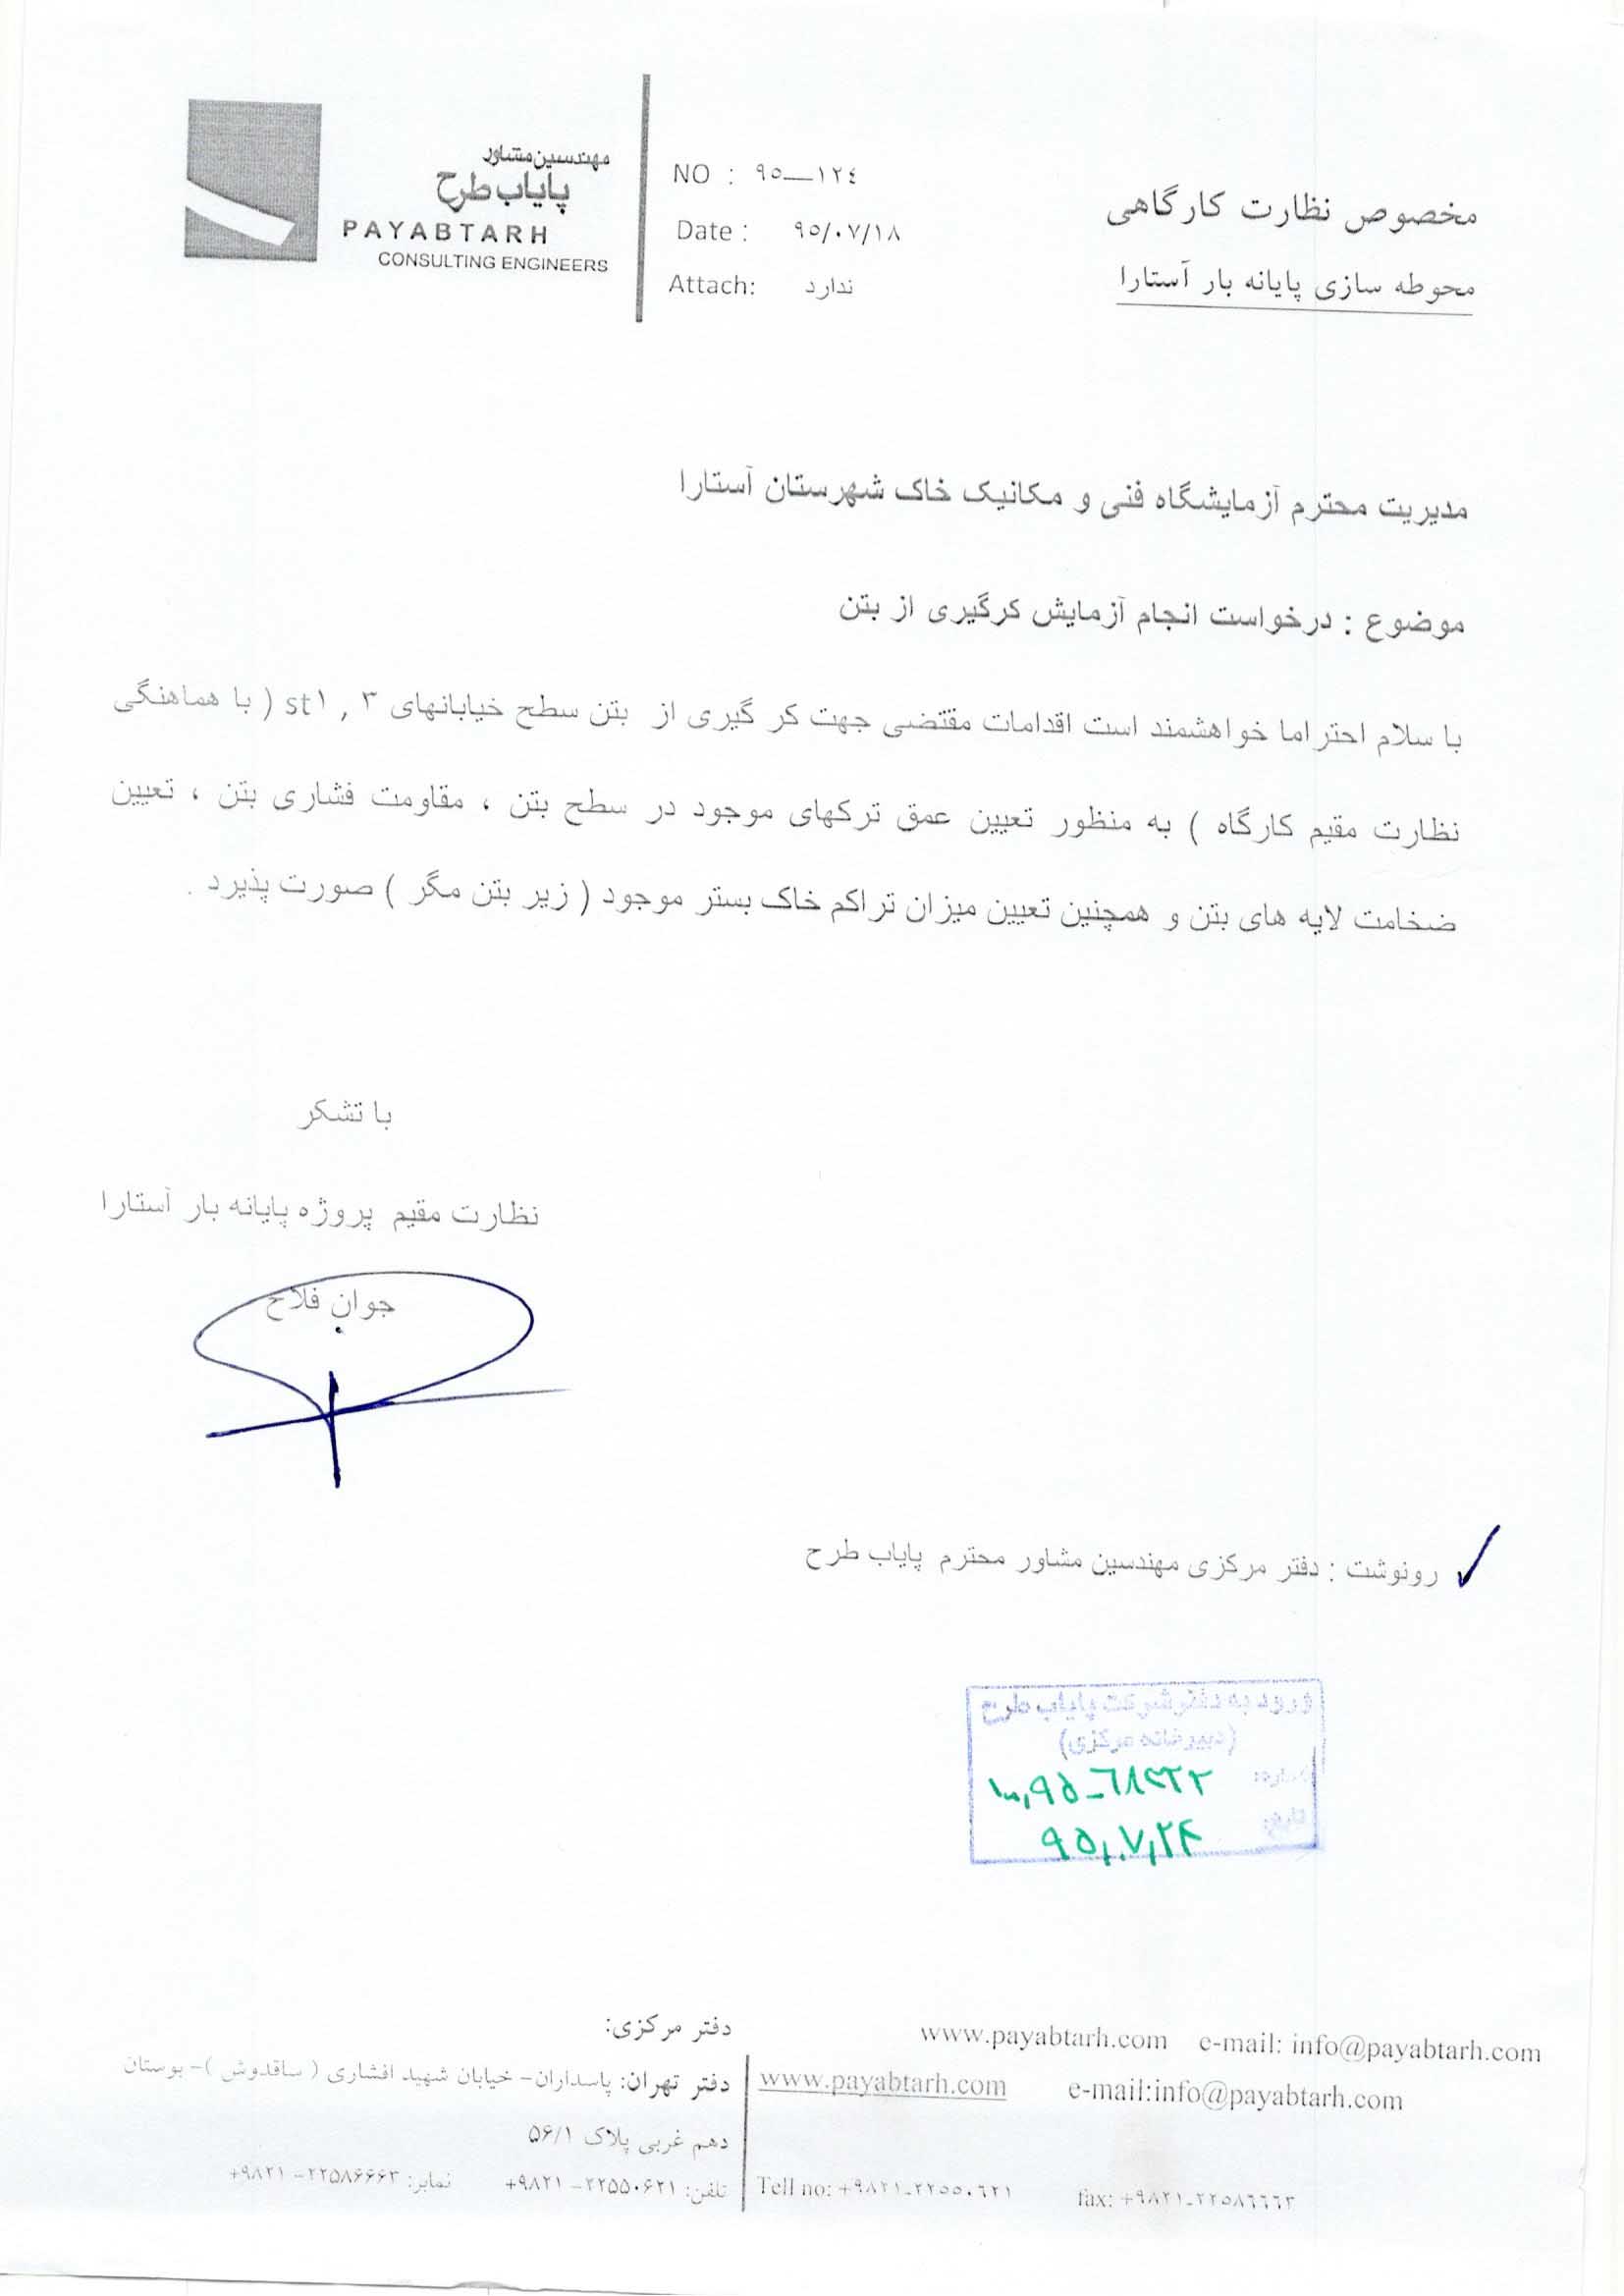 مهندسین مشاور
پایاب طرح
PAYABTARH
CONSULTING ENGINEERS
NO : ۹۵—۱۲٤
Date : ۹۵/۰۷/۱۸
Attach: ندارد
مخصوص نظارت کارگاهی
محوطه سازی پایانه بار آستارا
مدیریت محترم آزمایشگاه فنی و مکانیک خاک شهرستان آستارا
موضوع : درخواست انجام آزمایش کرگیری از بتن
با سلام احتراما خواهشمند است اقدامات مقتضی جهت کر گیری از بتن سطح خیابانهای ۳ , st۱ ( با هماهنگی
نظارت مقیم کارگاه ) به منظور تعیین عمق ترکهای موجود در سطح بتن ، مقاومت فشاری بتن ، تعیین
ضخامت لایه های بتن و همچنین تعیین میزان تراکم خاک بستر موجود ( زیر بتن مگر ) صورت پذیرد .
با تشکر
نظارت مقیم پروژه پایانه بار آستارا
جوان فلاح
رونوشت : دفتر مرکزی مهندسین مشاور محترم پایاب طرح
ورود به دفتر شرکت پایاب طرح
(دبیرخانه مرکزی)
شماره:
تاریخ: ۹۵,۰۷,۲۴
www.payabtarh.com e-mail: info@payabtarh.com
www.payabtarh.com e-mail:info@payabtarh.com
Tell no: +۹۸۲۱-۲۲۵۵۰٦۲۱ fax: +۹۸۲۱-۲۲۵۸٦٦٦۳
دفتر مرکزی:
دفتر تهران: پاسداران- خیابان شهید افشاری ( ساقدوش )- بوستان
دهم غربی پلاک ۵۶/۱
تلفن: ۲۲۵۵۰۶۲۱- ۹۸۲۱+ نمابر: ۲۲۵۸۶۶۶۳- ۹۸۲۱+